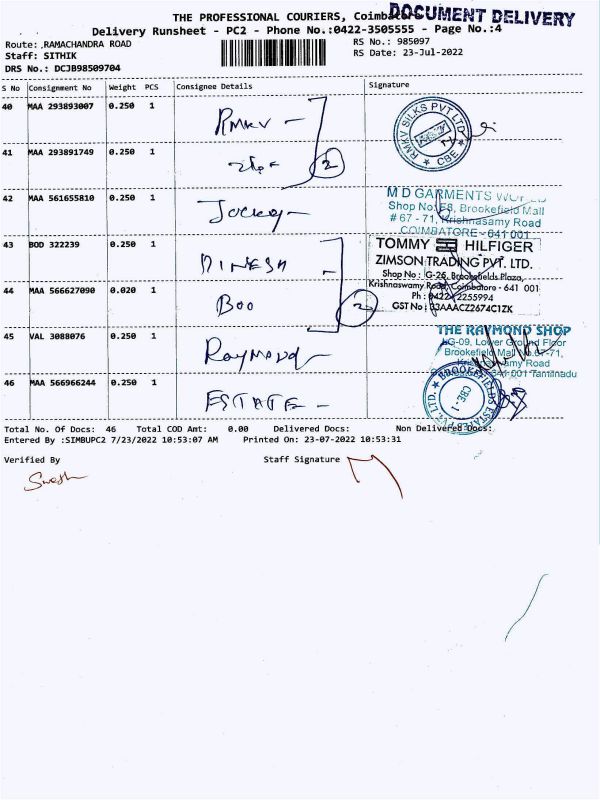 THE PROFESSIONAL COURIERS, Coimbatore
DOCUMENT DELIVERY
Delivery Runsheet - PC2 - Phone No.:0422-3505555 - Page No.:4
Route: ,RAMACHANDRA ROAD
RS No.: 985097
Staff: SITHIK
RS Date: 23-Jul-2022
DRS No.: DCJB98509704
S No Consignment No Weight PCS Consignee Details Signature
40 MAA 293893007 0.250 1 RMKV
RMKV SILKS PVT LTD
CBE
41 MAA 293891749 0.250 1
2
42 MAA 561655810 0.250 1 Jockey
M D GARMENTS
Shop No. E8, Brookefield Mall
# 67 - 71, Krishnasamy Road
COIMBATORE - 641 001
43 BOD 322239 0.250 1 DINESH
TOMMY HILFIGER
ZIMSON TRADING PVT. LTD.
Shop No : G-25, Brookefields Plaza,
Krishnaswamy Road, Coimbatore - 641 001
44 MAA 566627090 0.020 1 BOO
2
Ph : 0422 - 2255994
GST No : 33AAACZ2674C1ZK
45 VAL 3088076 0.250 1 Raymond
THE RAYMOND SHOP
LG-09, Lower Ground Floor
Brookefield Mall No.67-71,
Krishnasamy Road
641 001 Tamilnadu
46 MAA 566966244 0.250 1 ESTATE
BROOKEFIELDS ESTATES PVT. LTD.
CBE - 1
Total No. Of Docs: 46 Total COD Amt: 0.00 Delivered Docs: Non Delivered Docs:
Entered By :SIMBUPC2 7/23/2022 10:53:07 AM Printed On: 23-07-2022 10:53:31
Verified By Staff Signature